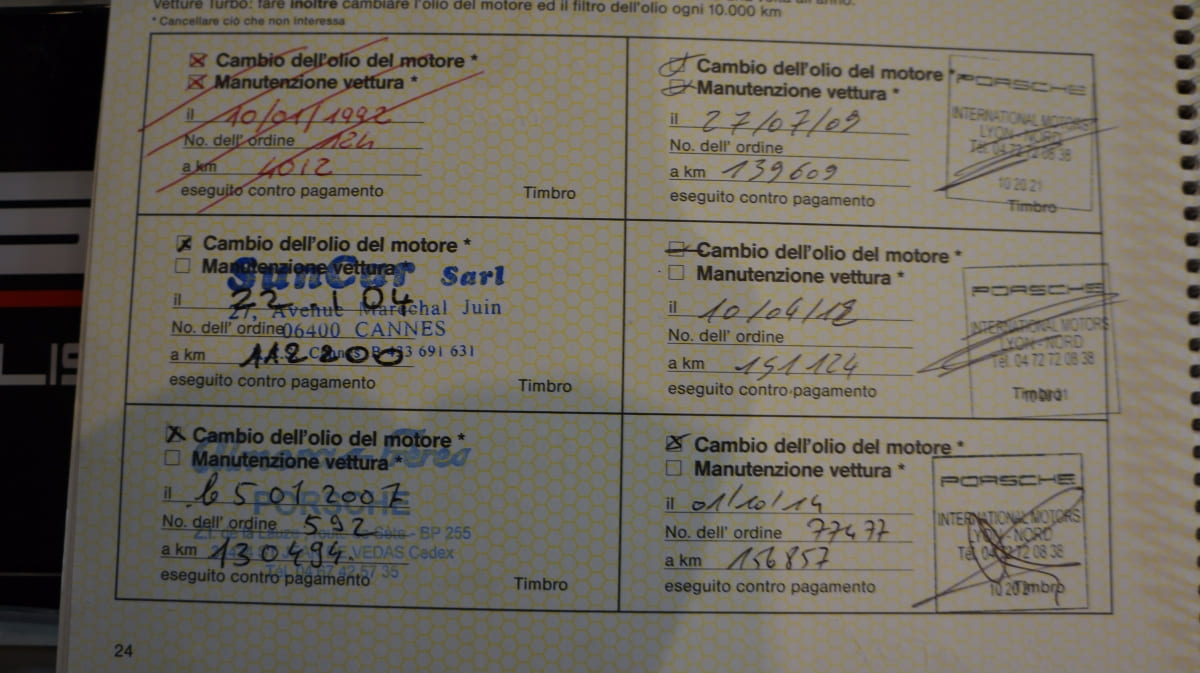 Vetture Turbo: fare inoltre cambiare l'olio del motore ed il filtro dell'olio ogni 10.000 km
* Cancellare ciò che non interessa
Cambio dell'olio del motore *
Manutenzione vettura *
il 10/01/1992
No. dell' ordine 124
a km 4012
eseguito contro pagamento Timbro
Cambio dell'olio del motore *
Manutenzione vettura *
il 22.1 04
No. dell' ordine
a km 112200
eseguito contro pagamento Timbro
SunCar Sarl
27, Avenue Maréchal Juin
06400 CANNES
433 691 631
Cambio dell'olio del motore *
Manutenzione vettura *
il 501 2007
No. dell' ordine 592
a km 130494.
eseguito contro pagamento Timbro
PORSCHE
BP 255
VEDAS Cedex
Tél. 04 67 42 57 35
Cambio dell'olio del motore *
Manutenzione vettura *
il 27/07/09
No. dell' ordine
a km 139609
eseguito contro pagamento
PORSCHE
INTERNATIONAL MOTORS
LYON - NORD
Tél. 04 72 72 08 38
10 20 21
Timbro
Cambio dell'olio del motore *
Manutenzione vettura *
il 10/04/12
No. dell' ordine
a km 151124
eseguito contro pagamento
PORSCHE
INTERNATIONAL MOTORS
LYON - NORD
Tél. 04 72 72 08 38
Timbro
Cambio dell'olio del motore *
Manutenzione vettura *
il 01/10/14
No. dell' ordine 77477
a km 156857
eseguito contro pagamento
PORSCHE
INTERNATIONAL MOTORS
LYON - NORD
Tél. 04 72 72 08 38
Timbro
24